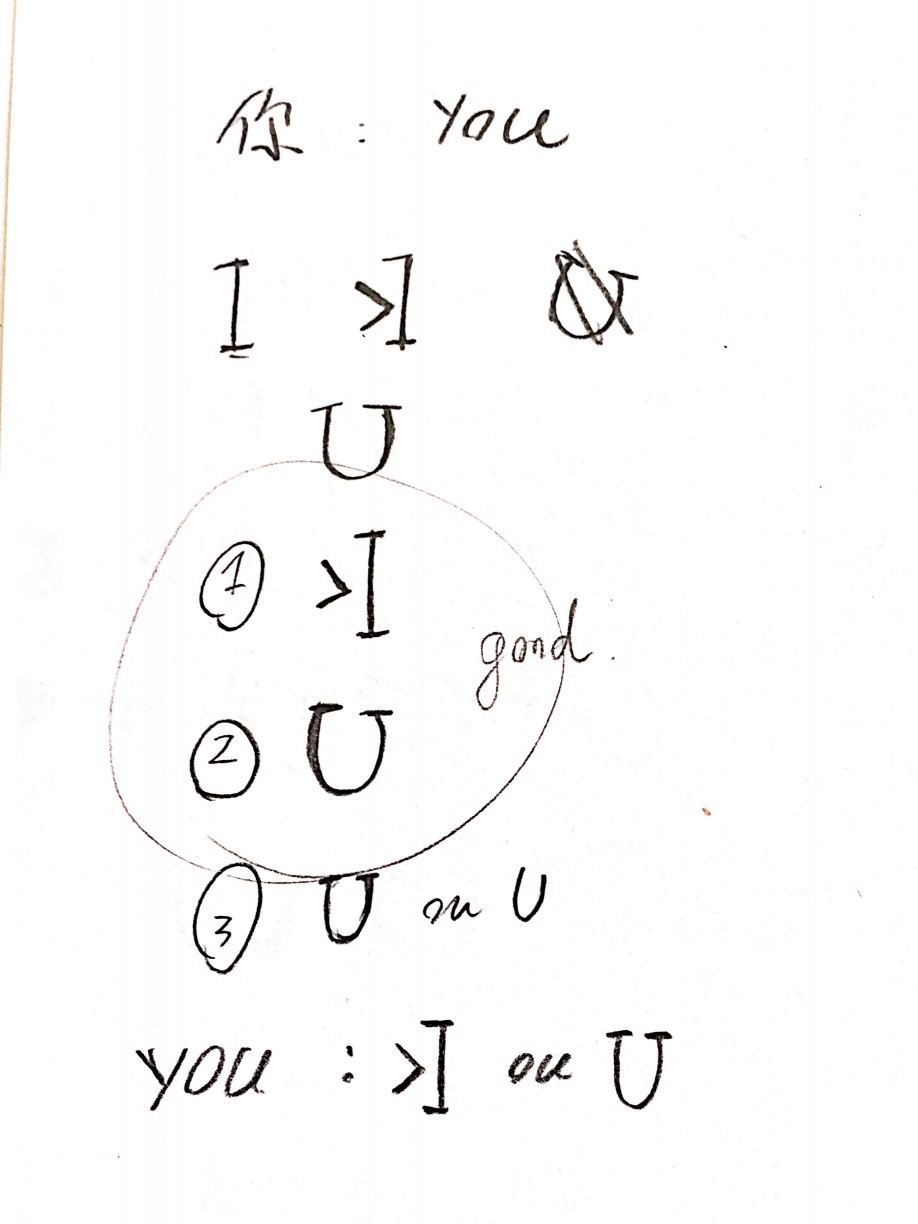 你 : you
I >I
U
① >I
good.
② U
③ U ou U
you : >I ou U